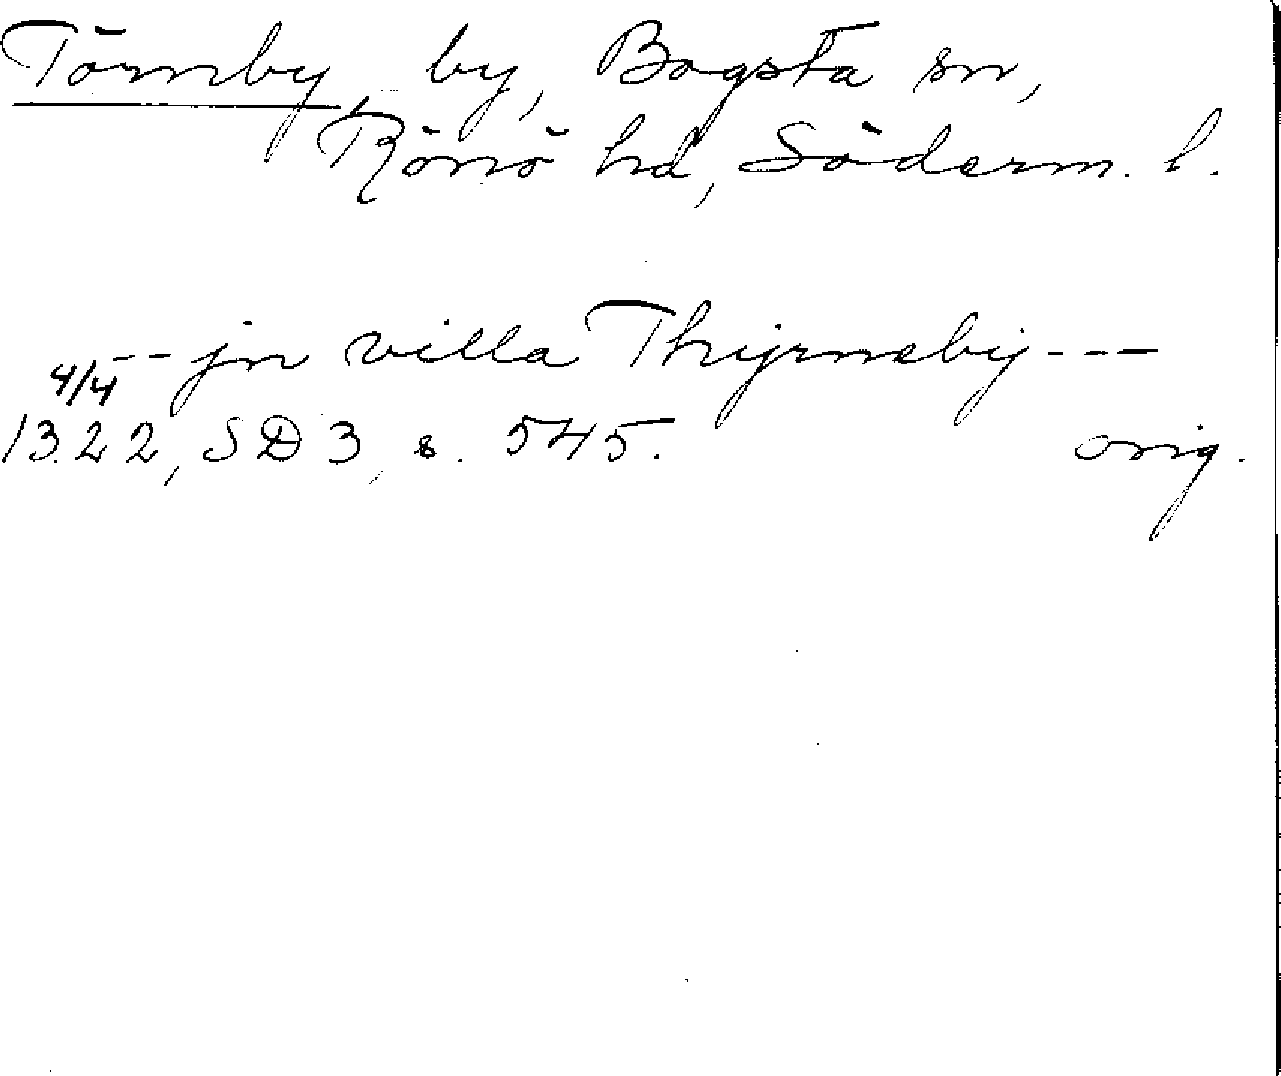 Törnby by, Bogsta sn,
Rönö hd, Söderm. l.
-- jn villa Thyrneby ---
4/4
1322, SD 3, s. 545. orig.